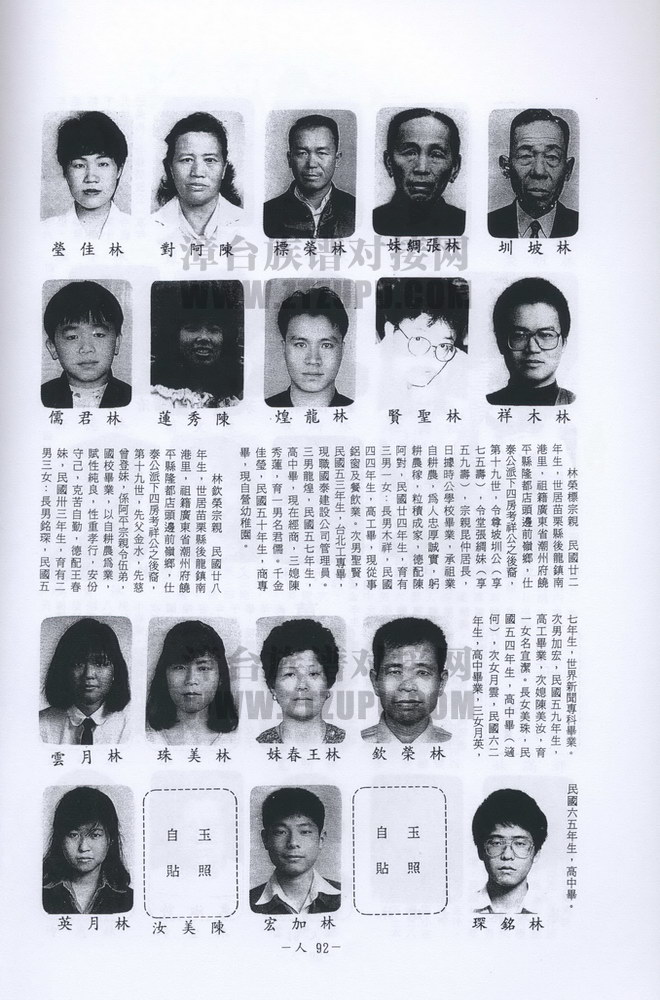 圳坡林
妹綢張林
標榮林
對阿陳
瑩佳林
漳台族谱对接网
WWW.ZTZUPU.COM
祥木林
賢聖林
煌龍林
蓮秀陳
儒君林
林榮標宗親　民國廿二
年生，世居苗栗縣後龍鎮南
港里，祖籍廣東省潮州府饒
平縣隆都店頭邊前嶺鄉，仕
泰公派下四房考祥公之後裔，
第十九世，令尊坡圳公（享
七五壽），令堂張綢妹（享
五九壽），宗親昆仲居長，
日據時公學校畢業，承祖業
自耕農，爲人忠厚誠實，躬
耕農稼，粒積成家，德配陳
阿對，民國廿四年生，育有
三男一女：長男木祥，民國
四四年生，高工畢，現從事
鋁窗及餐飲業。次男聖賢，
民國五三年生，台北工專畢，
現職國泰建設公司管理員。
三男龍煌，民國五七年生，
高中畢，現在經商，三媳陳
秀蓮，育一男名君儒。千金
佳瑩，民國五十年生，商專
畢，現自營幼稚園。
林欽榮宗親　民國廿八
年生，世居苗栗縣後龍鎮南
港里，祖籍廣東省潮州府饒
平縣隆都店頭邊前嶺鄉，仕
泰公派下四房考祥公之後裔，
第十九世，先父金水，先慈
曾登妹，係阿平宗親令伍弟，
國校畢業，以自耕農爲業，
賦性純良，性重孝行，安份
守己，克苦自勤，德配王春
妹，民國卅三年生，育有二
男三女：長男銘琛，民國五
七年生，世界新聞專科畢業。
次男加宏，民國五九年生，
高工畢業，次媳陳美汝，育
一女名宜潔。長女美珠，民
國五四年生，高中畢（適
何），次女月雲，民國六二
年生，高中畢業，三女月英，
民國六五年生，高中畢。
欽榮林
妹春王林
珠美林
雲月林
漳台族谱对接网
WWW.ZTZUPU.COM
琛銘林
玉照
自貼
宏加林
玉照
自貼
汝美陳
英月林
－人 92－